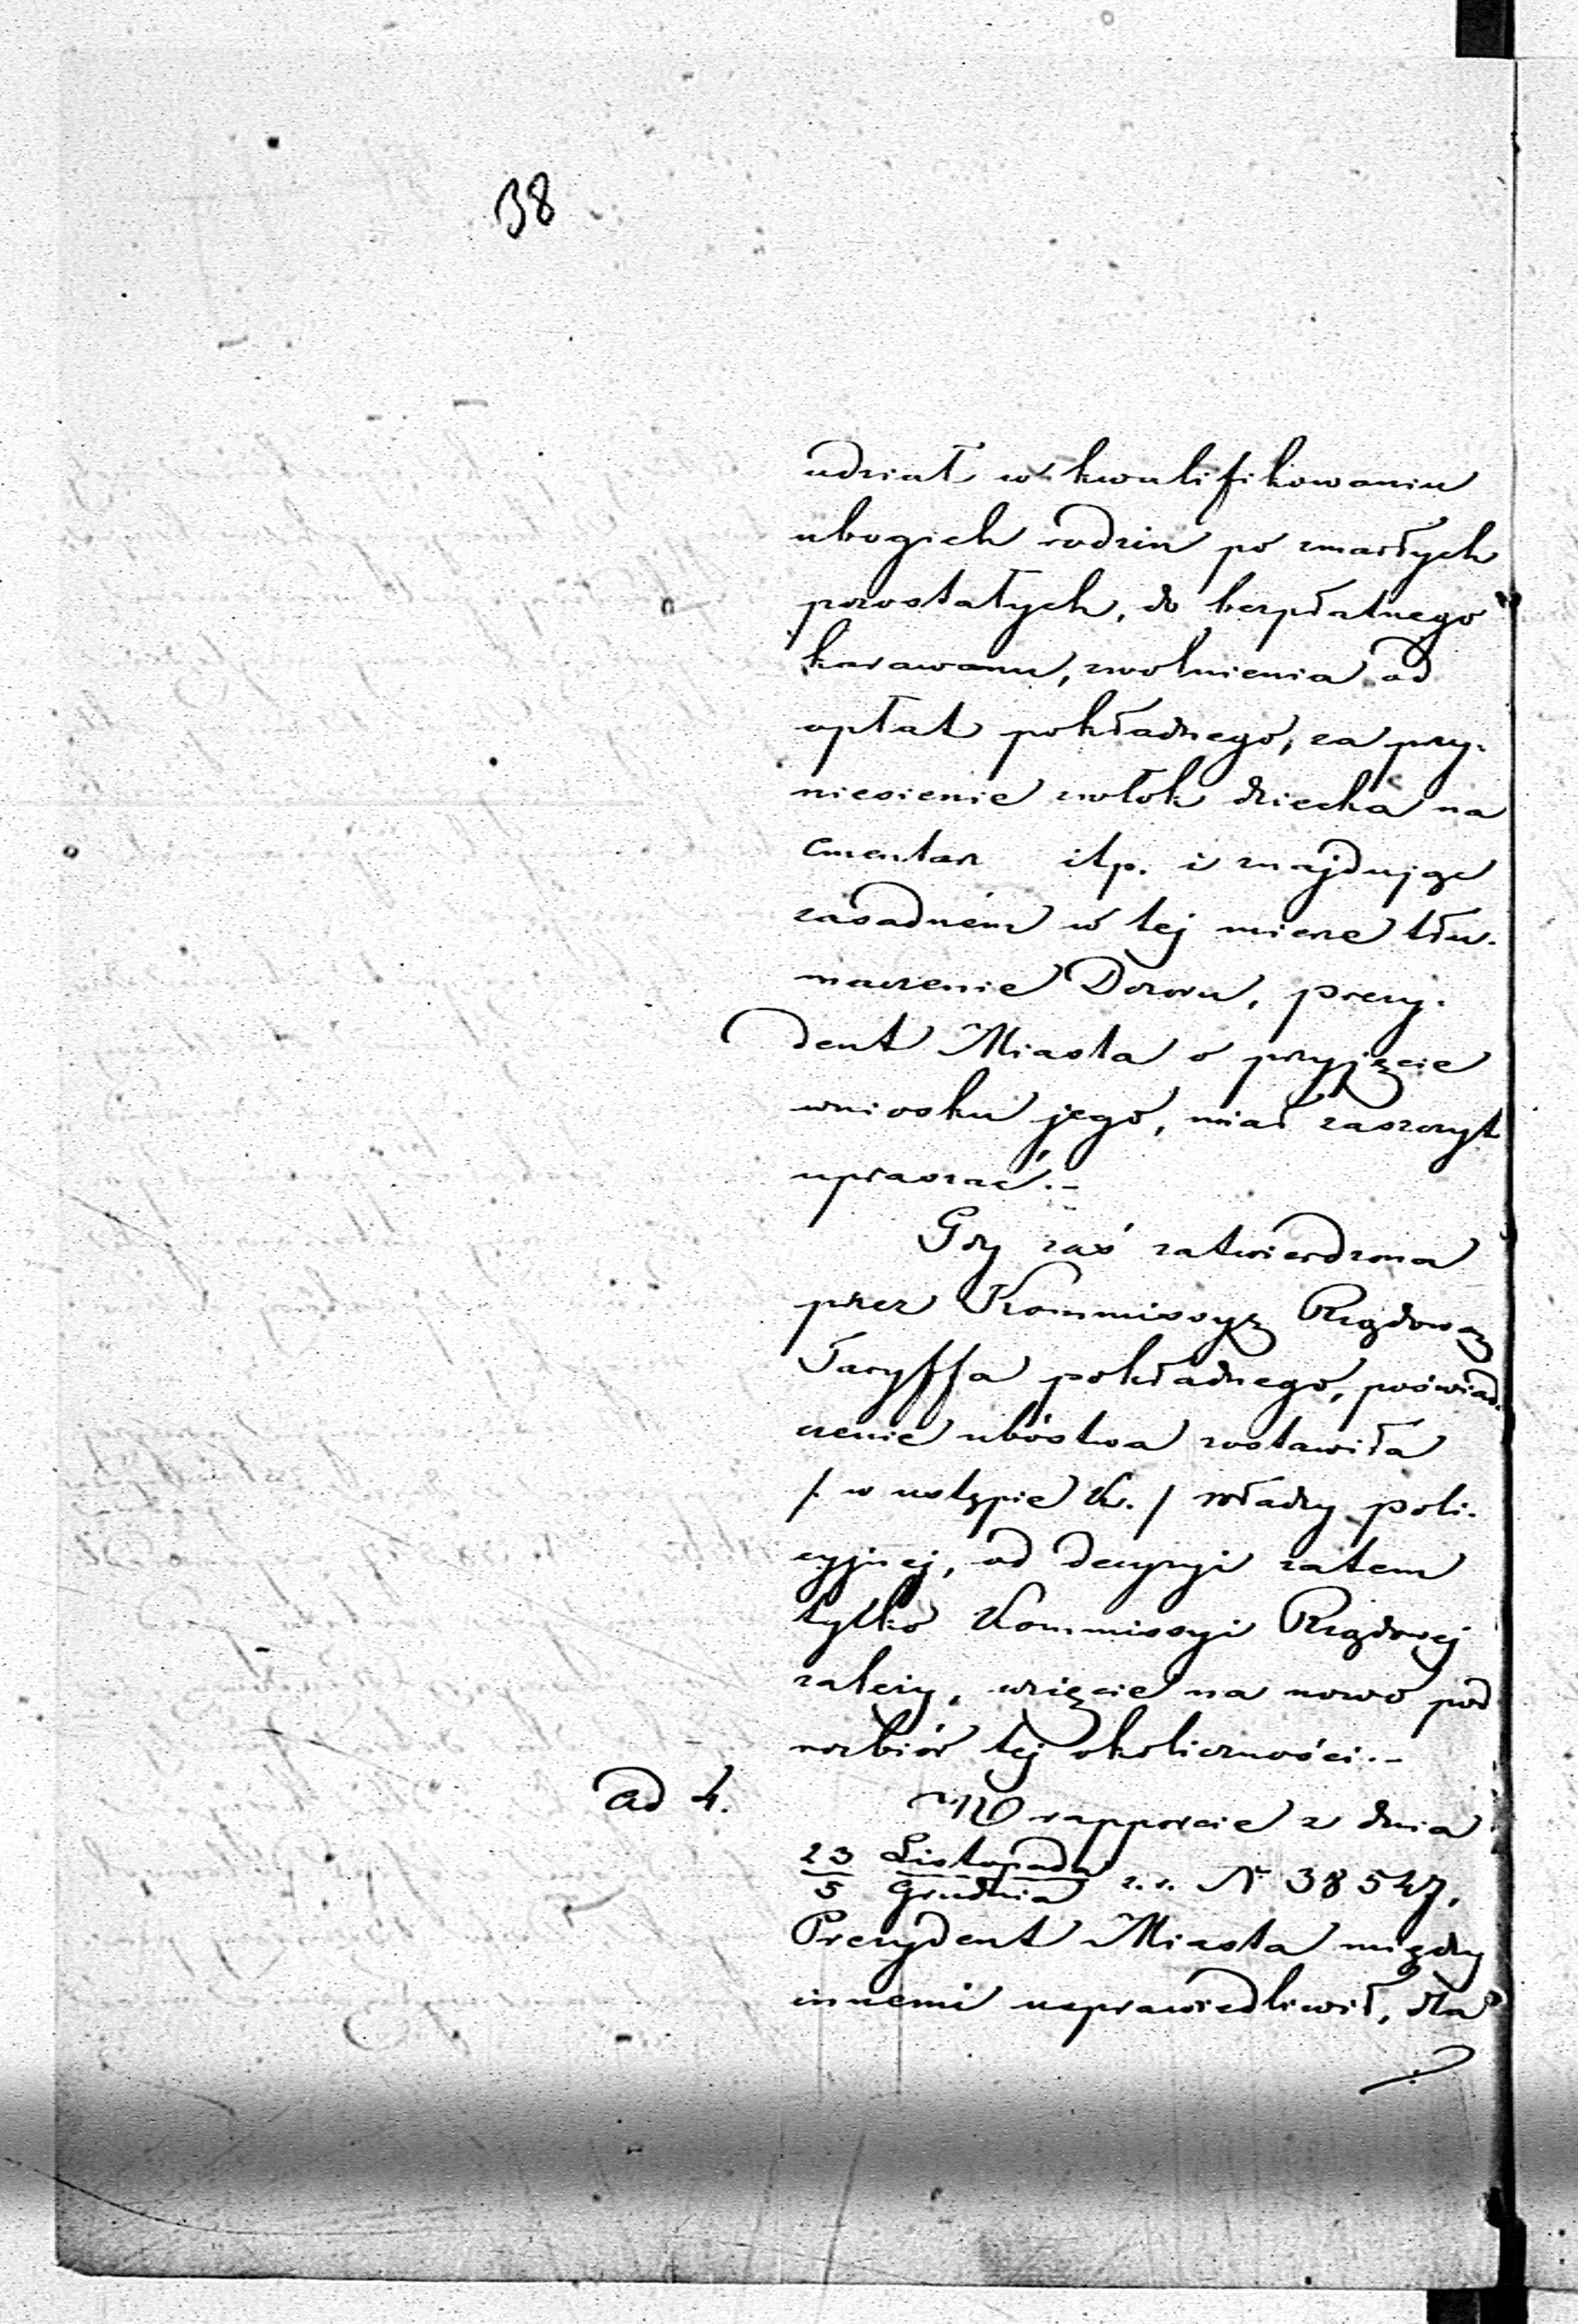 38
udział w kwalifikowaniu
ubogich rodzin po zmarłych
pozostałych, do bezpłatnego
karawanu, zwolnienia od
opłat pokładnego, za przy-
niesienie zwłok dziecka na
cmentarz itp. i znajdując
zasadném w tej mierze tłu-
maczenie Dozoru, prezy-
dent Miasta o przyjęcie
wniosku jego, miał zaszczyt
upraszać.-
Gdy zaś zatwierdzona
przez Kommissyę Rządową
Taryffa pokładnego, poświad-
czenie ubóstwa zostawiła
/: w ustępie K. / władzy poli-
cyjnej, od decyzyi zatem
tylko Kommissyi Rządowej
zależy, wzięcie na nowo pod
rozbiór tej okoliczności.-
ad 4. W rapporcie z dnia
23/5 Listopada/Grudnia r. z. N 38547,
Prezydent Miasta między
innemi usprawiedliwił, dla